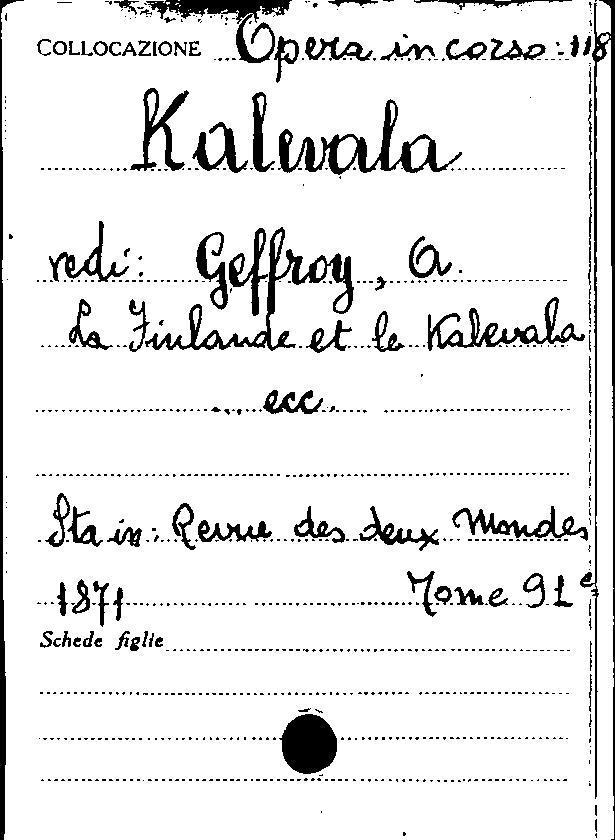 COLLOCAZIONE Opera in corso: 118
Kalevala
vedi: Geffroy, A.
La Finlande et le Kalevala
... ecc.
Sta in: Revue des deux Mondes
1871 Tome 91e
Schede figlie